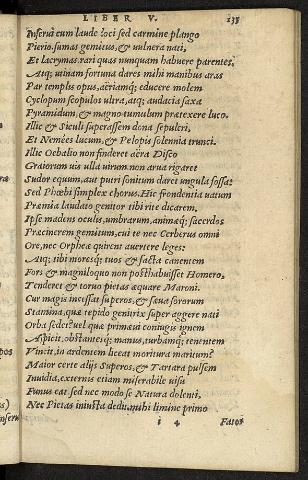 LIBER V. 135
Inserui cum laude loci sed carmine plango
Pierio. sumas gemitus, & vulnera nati,
Et lacrymas. rari quas nunquam habuere parentes.
Atq; utinam fortuna dares mihi manibus aras
Par templis opus, aëriamq; educere molem
Cyclopum scopulos ultra, atq; audacia saxa
Pyramidum, & magno tumulum prætexere luco.
Illic & Siculi superassem dona sepulcri,
Et Nemées lucum, & Pelopis solennia trunci.
Illic Oebalio non finderet aëra Disco
Graiorum vis ulla virum non arua rigaret
Sudor equum, aut putri sonitum daret ungula fossa:
Sed Phœbi simplex chorus. Hic frondentia vatum
Præmia laudato genitor tibi rite dicarem,
Ipse madens oculis, umbrarum, animæq; sacerdos
Præcinerem gemitum, cui te nec Cerberus omni
Ore, nec Orpheæ quirent avertere leges:
Atq; tibi moresq; tuos & facta canentem
Fors & magniloquo non posthabuisset Homero,
Tenderet & toruo pietas æquare Maroni.
Cur magis incessat superos, & sæua sororum
Stamina, quæ tepido genitrix super aggere nati
Orba sedet? uel quæ primæui coniugis ignem
Aspicit, obstantesq; manus, turbamq; tenentem
Vincit, in ardentem liceat moritura maritum?
Maior certe alijs Superos, & Tartara pulsem
Inuidia, externis etiam miserabile uisu
Funus eat. sed nec modo se Natura dolenti,
Nec Pietas iniusta dedit. mihi limine primo
i 4 Fatorũ